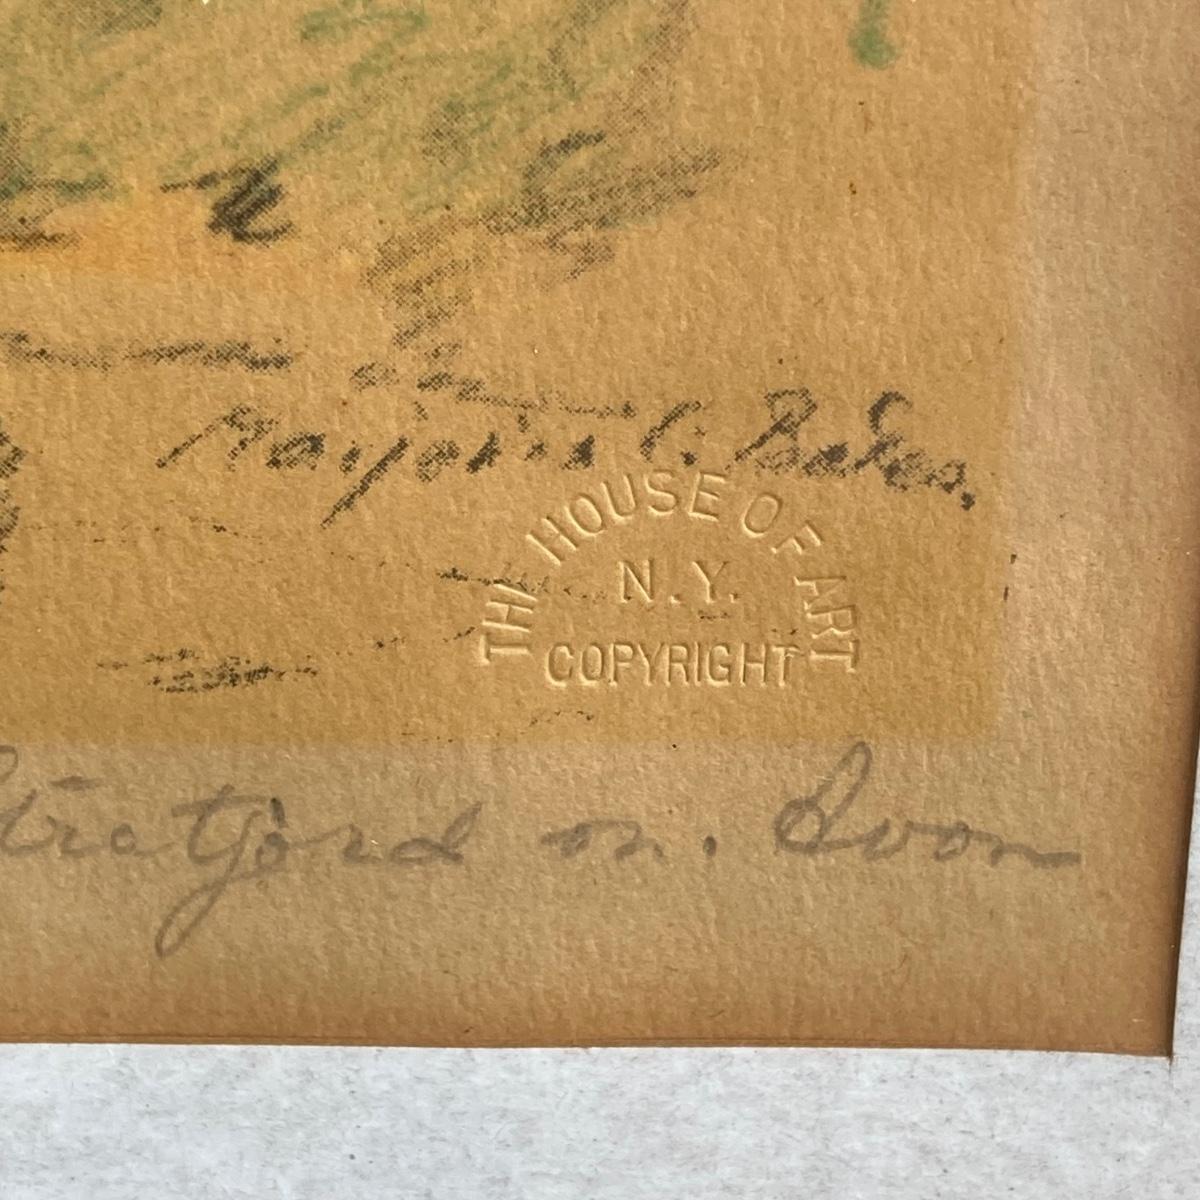 Marjorie C. Bates,
THE HOUSE OF ART
N.Y.
COPYRIGHT
Stratford on. Avon